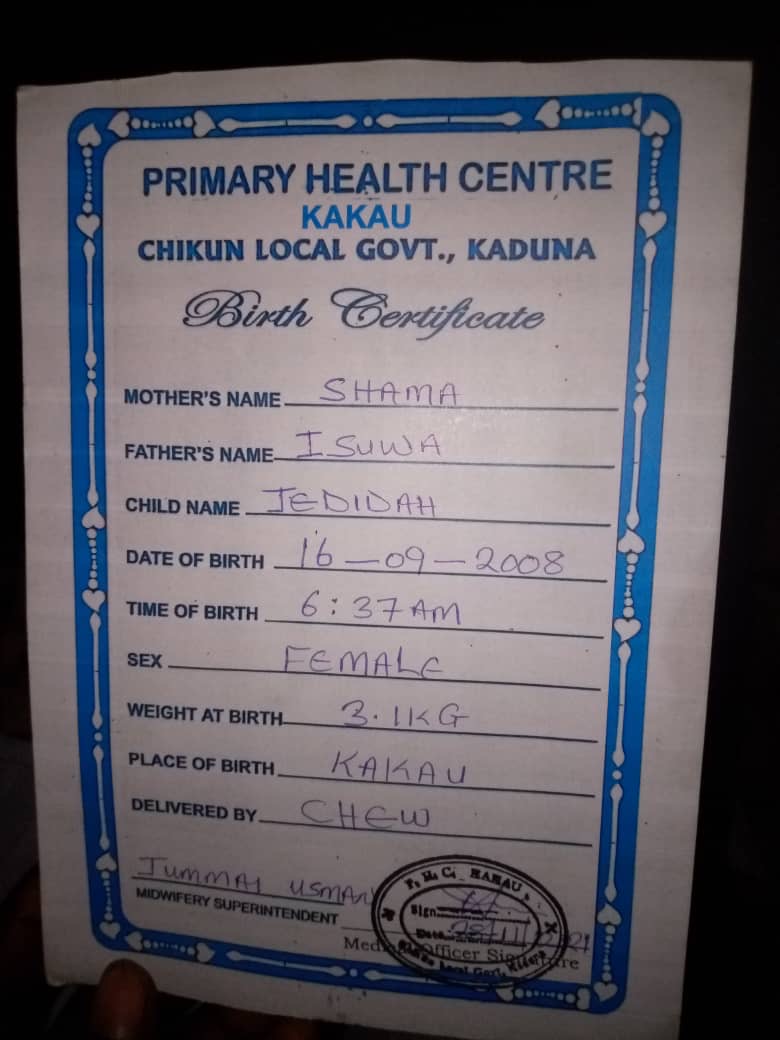 PRIMARY HEALTH CENTRE
KAKAU
CHIKUN LOCAL GOVT., KADUNA
Birth Certificate
MOTHER'S NAME SHAMA
FATHER'S NAME ISUWA
CHILD NAME JEDIDAH
DATE OF BIRTH 16-09-2008
TIME OF BIRTH 6:37AM
SEX FEMALE
WEIGHT AT BIRTH 3.1KG
PLACE OF BIRTH KAKAU
DELIVERED BY CHEW
JUMMAI USMAN
MIDWIFERY SUPERINTENDENT
P. H. C. KAKAU
Sign
Date 28/11
Local Govt.
Officer